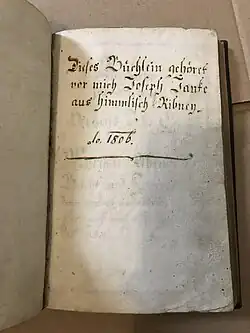 Dieses Büchlein gehöret
vor mich Joseph Janke
aus himmlisch Ribney.
do. 1806.